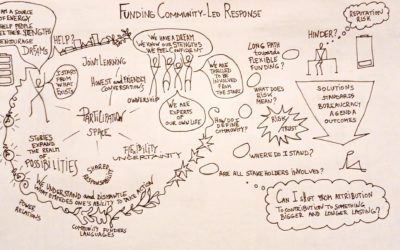 FUNDING COMMUNITY-LED RESPONSE
I AM A SOURCE
OF ENERGY
HELP PEOPLE
SEE THEIR STRENGTHS
ENCOURAGE
DREAMS
HELP?
I START
FROM
WHAT
EXISTS
JOINT LEARNING
HONEST AND FRIENDLY
CONVERSATIONS
OWNERSHIP
PARTICIPATION
SPACE
FLEXIBILITY
UNCERTAINTY
SHARED
RESPONSIBILITY
STORIES
EXPAND
THE REALM
OF
POSSIBILITIES
WE UNDERSTAND AND DISMANTLE
WHAT IMPEDES ONE'S ABILITY TO TAKE ACTION
POWER
RELATIONS
COMMUNITY FUNDERS
LANGUAGES
WE HAVE A DREAM
WE KNOW OUR STRENGTHS
WE FEEL CONFIDENT
WE ARE
THRILLED
TO BE
INVOLVED
FROM
THE START
WE ARE
EXPERTS
OF OUR
OWN LIFE
LONG PATH
TOWARDS
FLEXIBLE
FUNDING?
WHAT DOES
RISK
MEAN?
RISK
TRUST
HOW DO I
DEFINE
COMMUNITY?
WHERE DO I STAND?
ARE ALL STAKEHOLDERS INVOLVED?
HINDER?
REPUTATION
RISK
SOLUTIONS
STANDARDS
BUREAUCRACY
AGENDA
OUTCOMES
CAN I SHIFT FROM ATTRIBUTION
TO CONTRIBUTION TO SOMETHING
BIGGER AND LONGER LASTING?